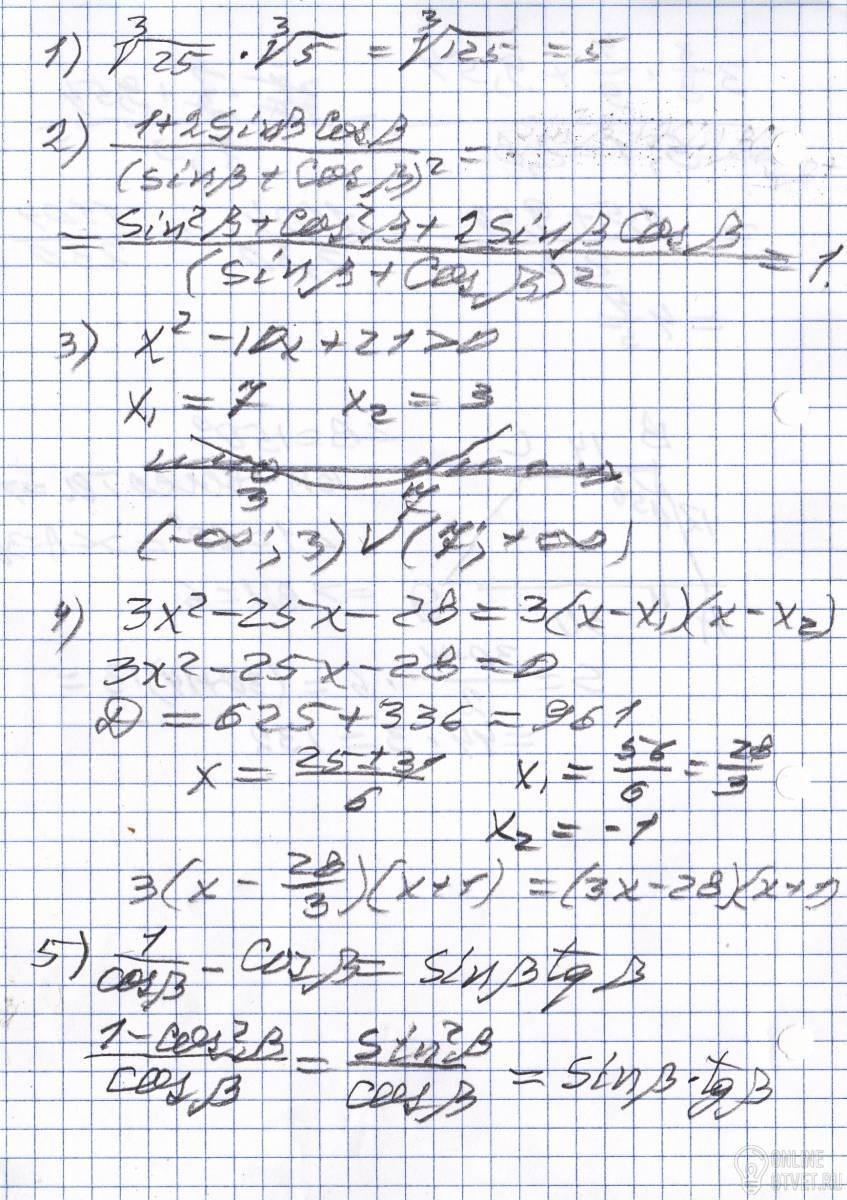 1) ∛25 · ∛5 = ∛125 = 5
2) (1+2sinβcosβ)/(sinβ+cosβ)² =
= (sin²β+cos²β+2sinβcosβ)/(sinβ+cosβ)² = 1.
3) x²-10x+21>0
x₁ = 7 x₂ = 3
3 7
(-∞; 3) ∪ (7; +∞)
4) 3x²-25x-28=3(x-x₁)(x-x₂)
3x²-25x-28=0
D=625+336=961
x = (25±31)/6 x₁ = 56/6 = 28/3
x₂ = -1
3(x - 28/3)(x+1) = (3x-28)(x+1)
5) 1/cosβ - cosβ = sinβ tgβ
(1-cos²β)/cosβ = sin²β/cosβ = sinβ·tgβ
ONLINE
OTVET.RU